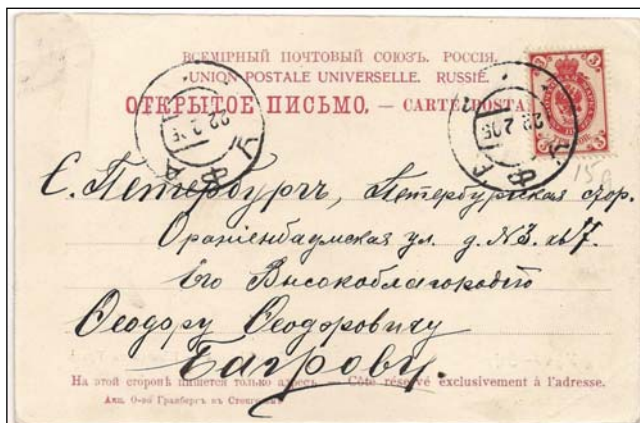 ВСЕМІРНЫЙ ПОЧТОВЫЙ СОЮЗЪ. РОССІЯ.
UNION POSTALE UNIVERSELLE. RUSSIE.
ОТКРЫТОЕ ПИСЬМО. — CARTE POSTA
3 3
3 3
22 2 05
УФА
22 2 05
УФА
15
С. Петербургъ, Петербургская стор.
Ораніенбаумская ул. д. №3. кв 7.
Его Высокоблагородію
Ѳеодору Ѳеодоровичу
Багрову.
На этой сторонѣ пишется только адресъ. — Côté réservé exclusivement à l'adresse.
Акц. О-во Гранбергъ въ Стокгольмѣ